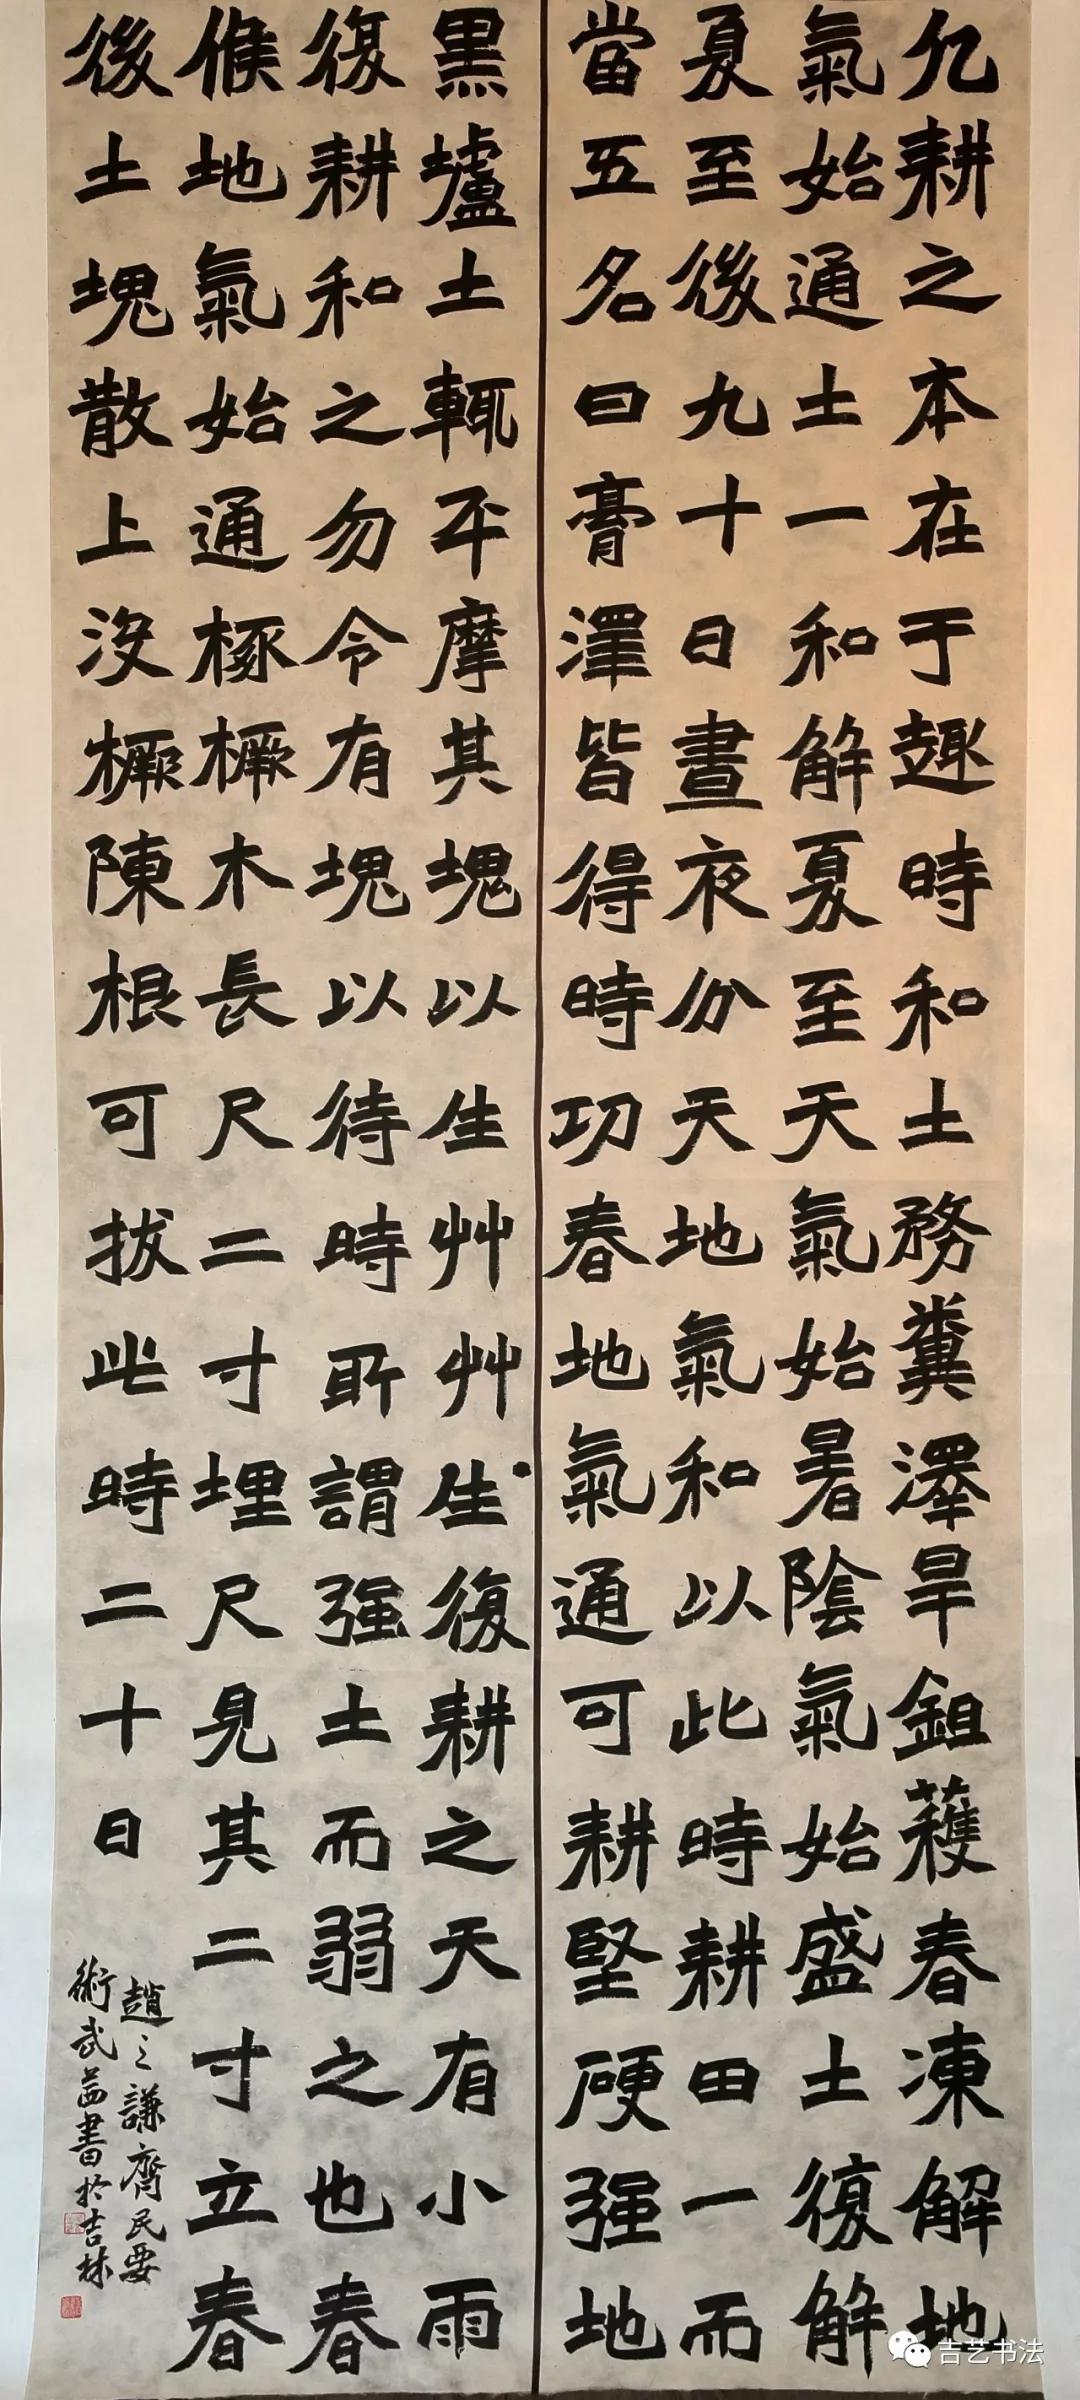 凡耕之本在于趣時和土務糞澤旱鉏穫春凍解地
氣始通土一和解夏至天氣始暑陰氣始盛土復解
夏至後九十日晝夜分天地氣和以此時耕田一而
當五名曰膏澤皆得時功春地氣通可耕堅硬强地
黑壚土輒平摩其塊以生艸艸生復耕之天有小雨
復耕和之勿令有塊以待時所謂强土而弱之也春
候地氣始通椓橛木長尺二寸埋尺見其二寸立春
後土塊散上没橛陳根可拔此時二十日
趙之謙齊民要
術武書於吉林
吉艺书法